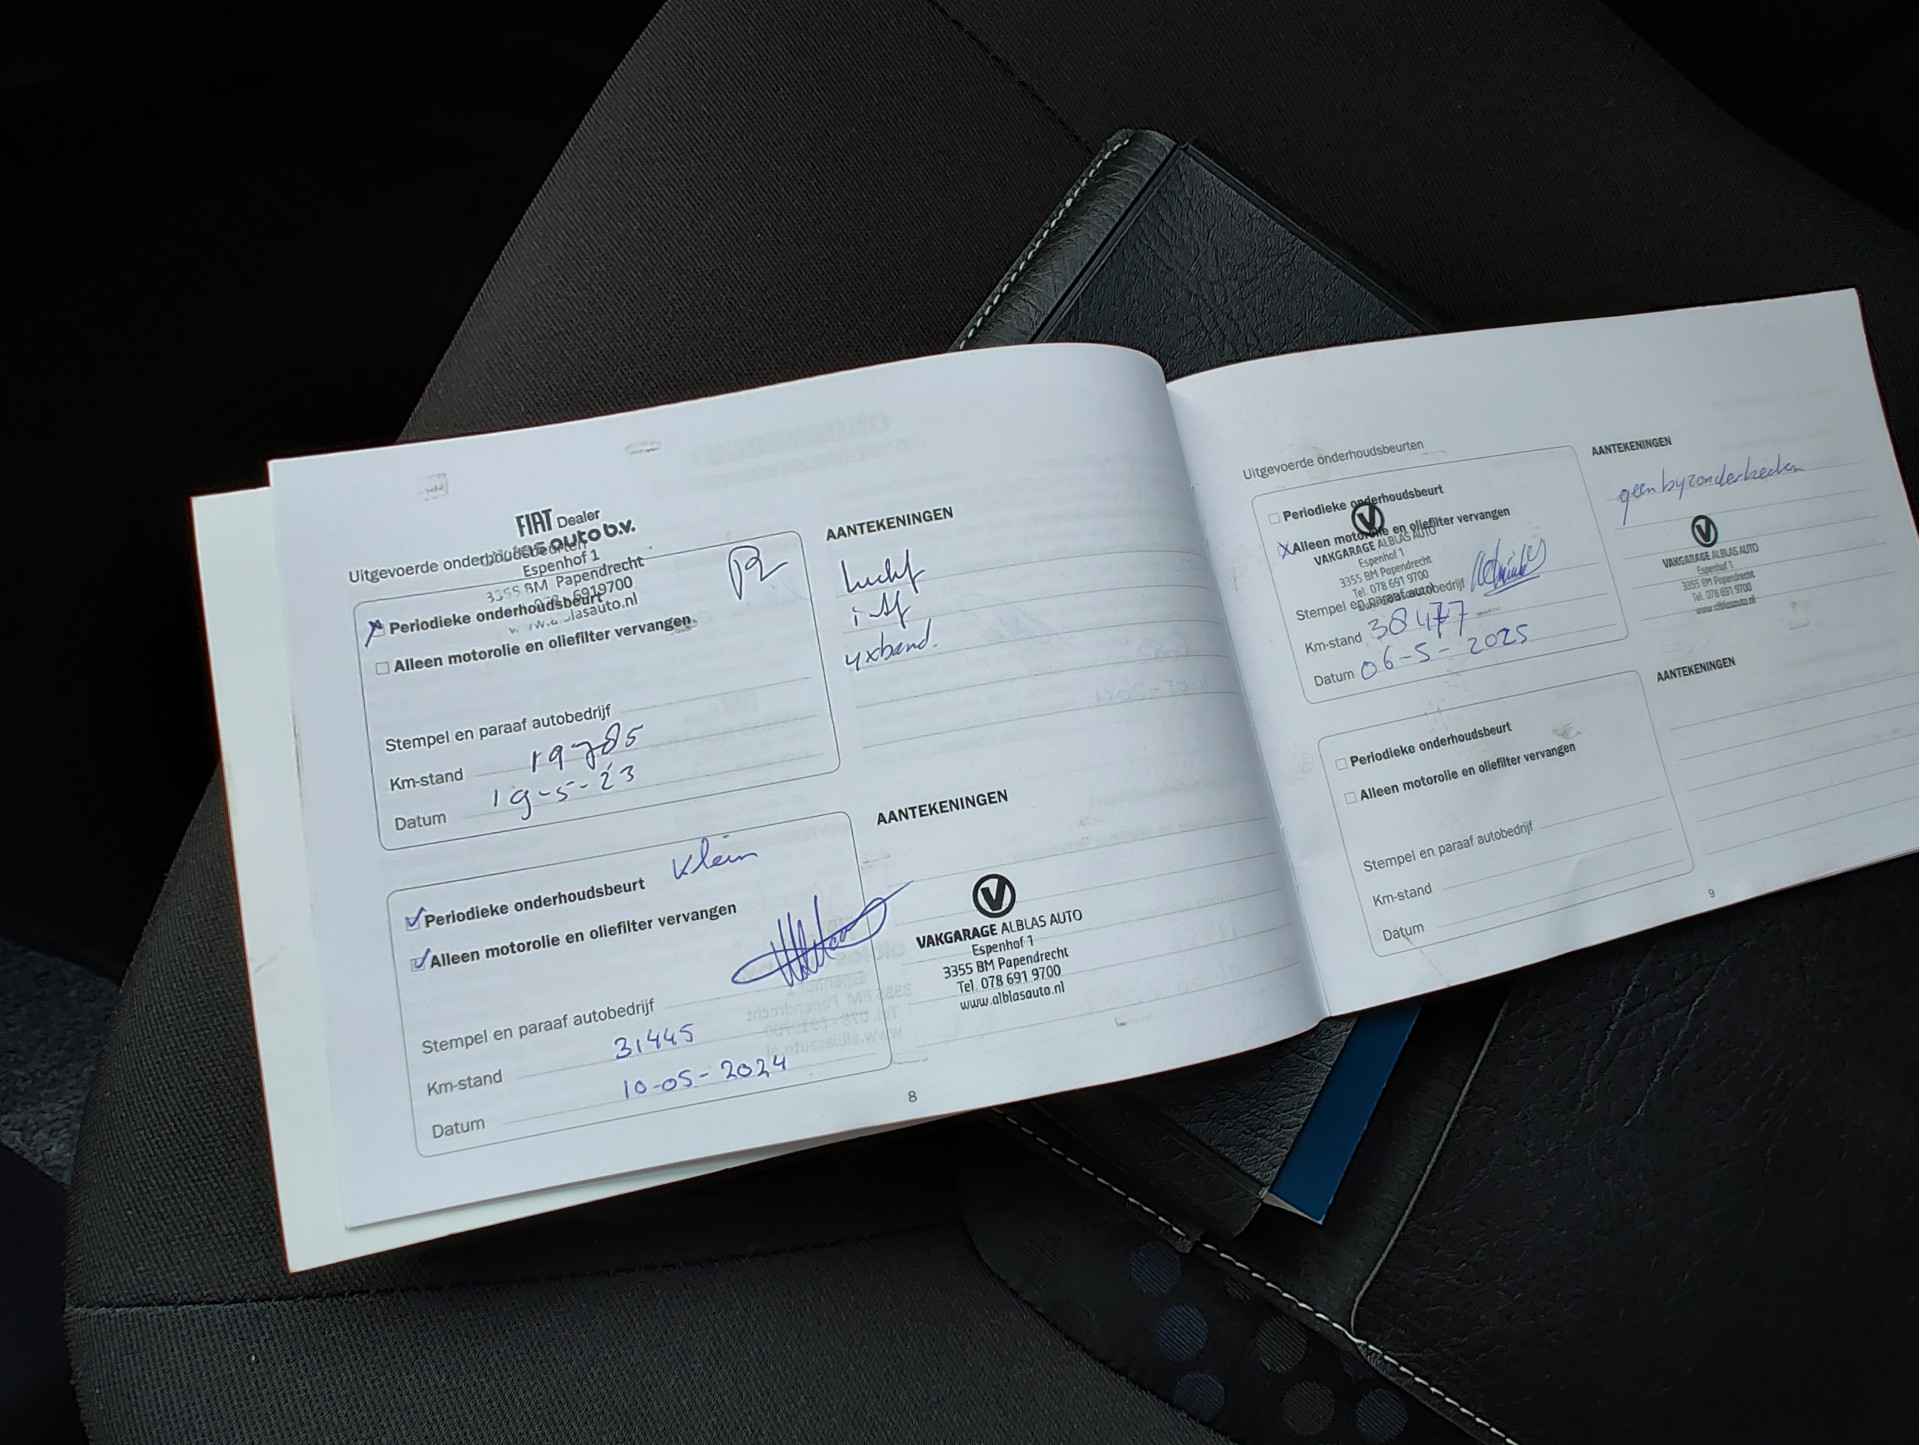 FIAT Dealer
auto b.v.
Uitgevoerde onderhoudsbeurten
Espenhof 1
3355 BM Papendrecht
6919700
Periodieke onderhoudsbeurt
Alleen motorolie en oliefilter vervangen
Stempel en paraaf autobedrijf
Km-stand 19785
Datum 19-5-23
AANTEKENINGEN
lucht
4xband.
Periodieke onderhoudsbeurt klein
Alleen motorolie en oliefilter vervangen
Stempel en paraaf autobedrijf
Km-stand 31445
Datum 10-05-2024
AANTEKENINGEN
VAKGARAGE ALBLAS AUTO
Espenhof 1
3355 BM Papendrecht
Tel. 078 691 9700
www.alblasauto.nl
8
Uitgevoerde onderhoudsbeurten
Periodieke onderhoudsbeurt
Alleen motorolie en oliefilter vervangen
VAKGARAGE ALBLAS AUTO
Espenhof 1
3355 BM Papendrecht
Tel. 078 691 9700
Stempel en paraaf autobedrijf
Km-stand 38477
Datum 06-5-2025
AANTEKENINGEN
geen byzonderheden
VAKGARAGE ALBLAS AUTO
Espenhof 1
3355 BM Papendrecht
Tel. 078 691 9700
www.alblasauto.nl
Periodieke onderhoudsbeurt
Alleen motorolie en oliefilter vervangen
Stempel en paraaf autobedrijf
Km-stand
Datum
AANTEKENINGEN
9